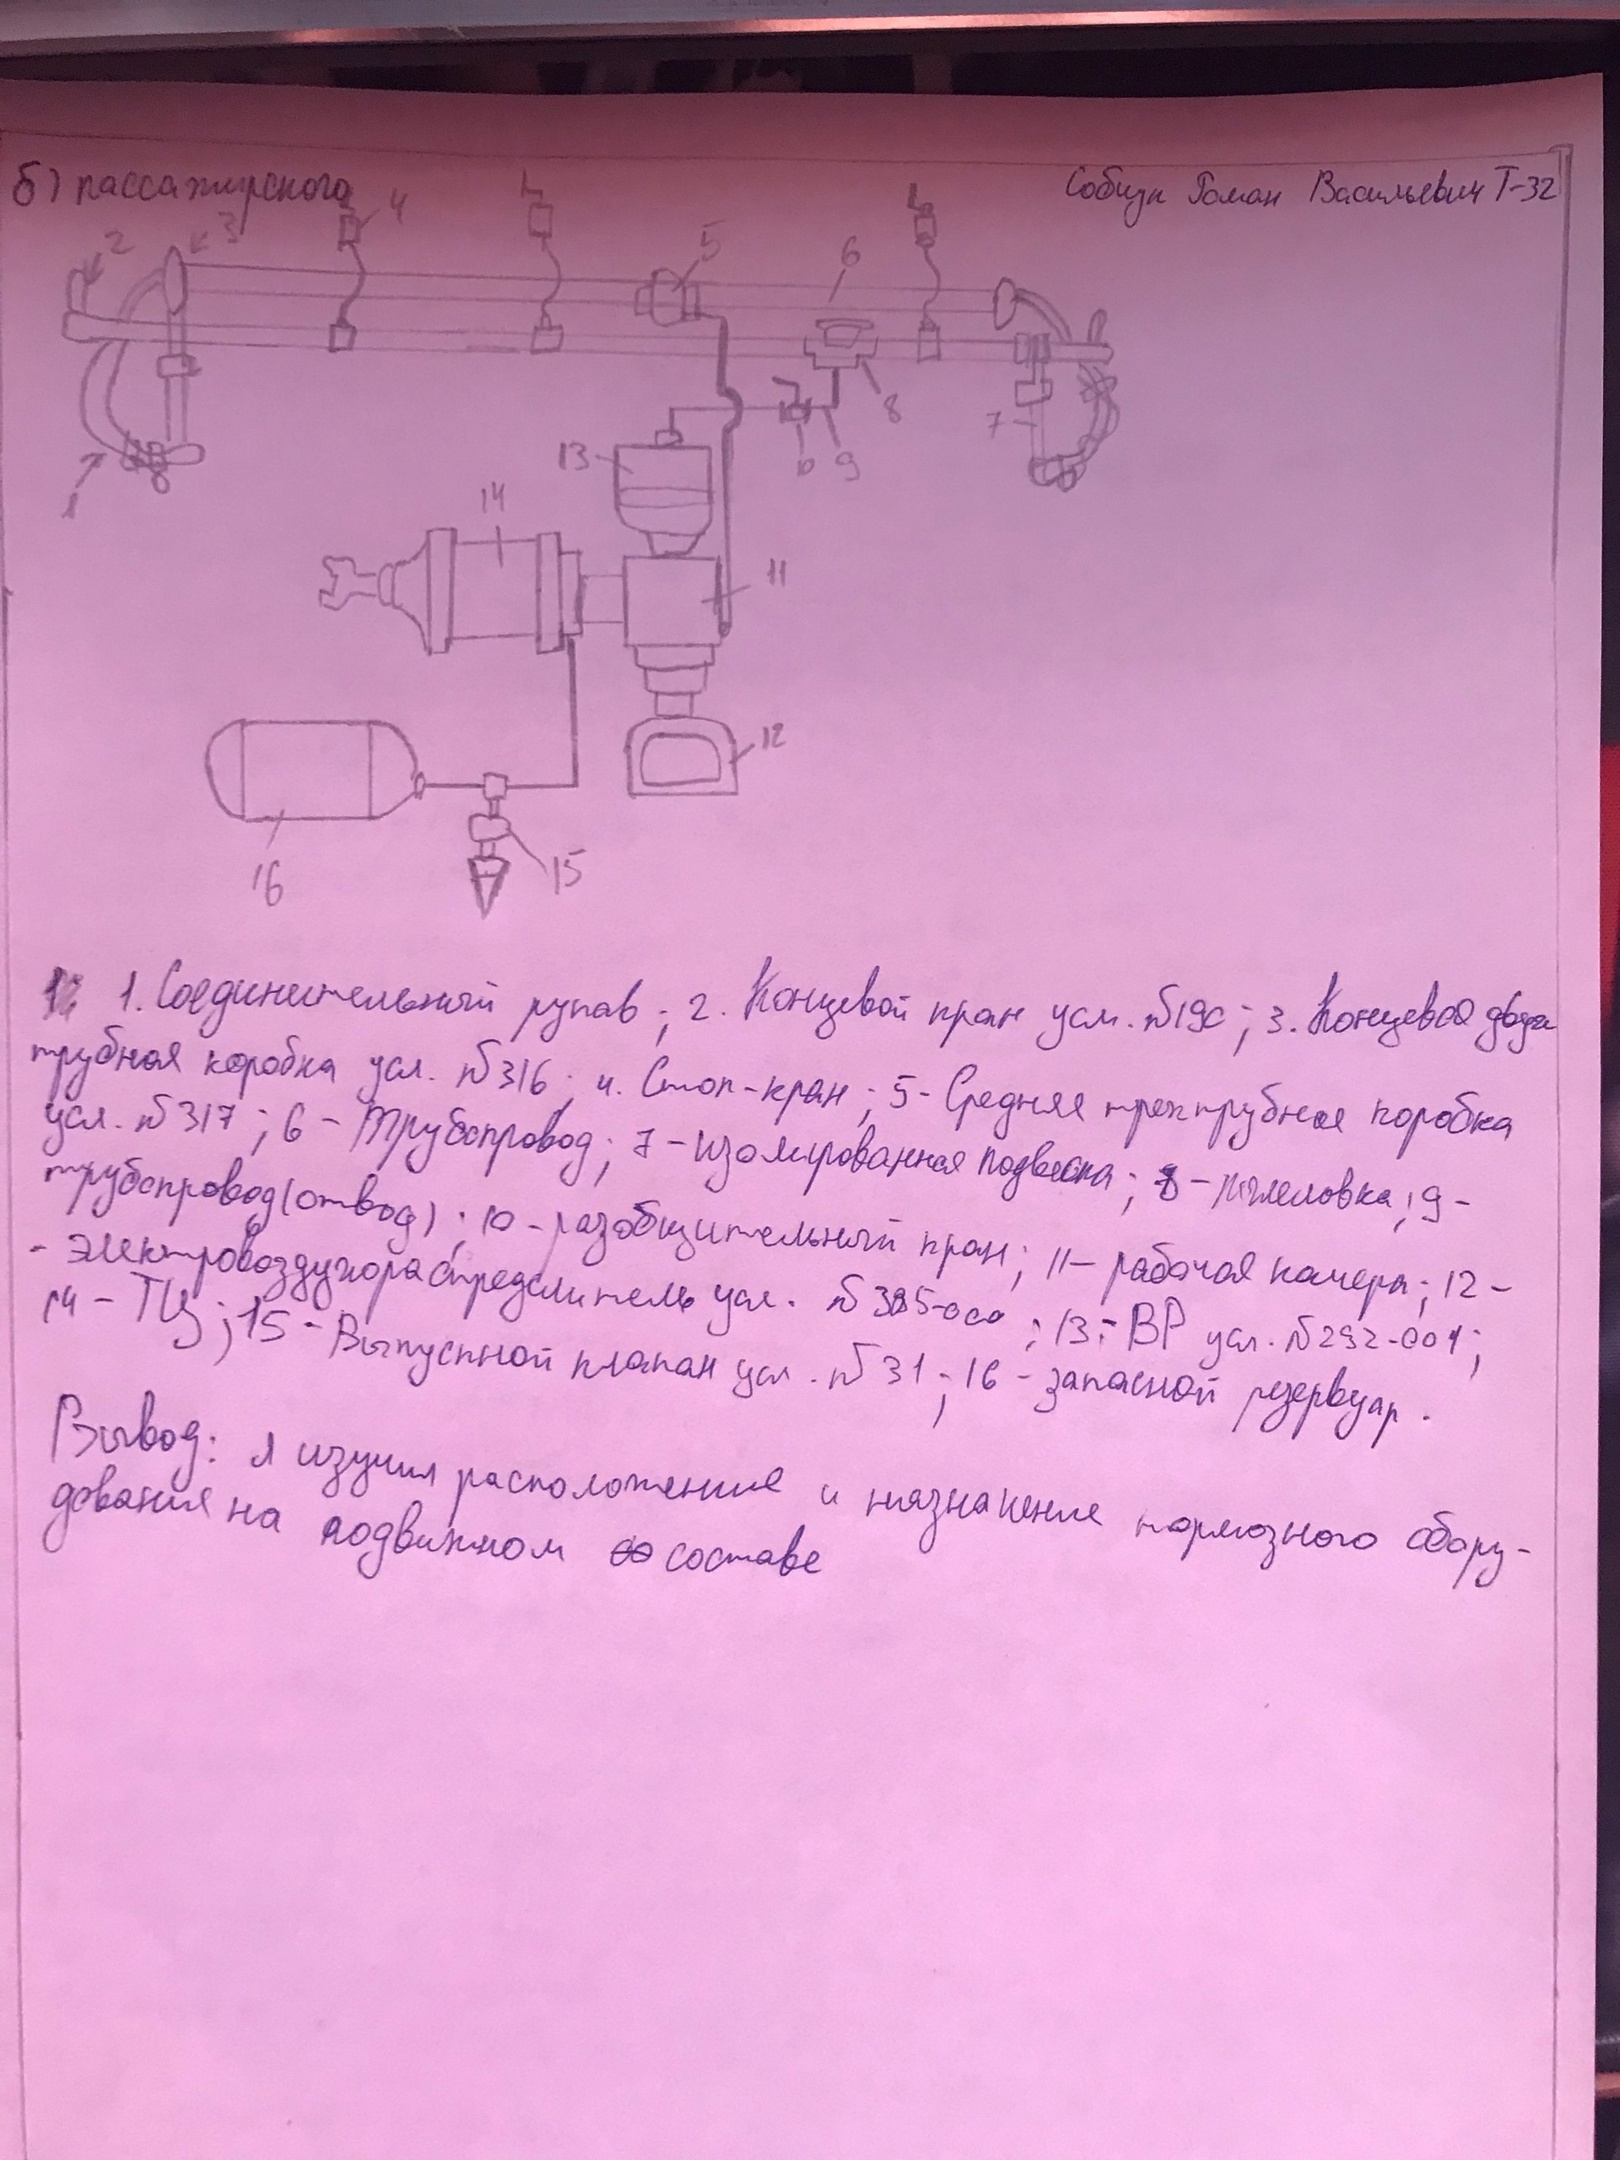 б) пассажирского
Роман Васильевич Т-32
2 3 4 5 6
1 7 8
13 10 9
14 11
12
16 15
1. Соединительный рукав; 2. Концевой кран усл. №190; 3. Концевая двух
трубная коробка усл. №316; 4. Стоп-кран; 5- Средняя трехтрубная коробка
усл. №317; 6 - Трубопровод; 7 - изолированная подвеска; 8 - пылеловка; 9-
трубопровод (отвод); 10 - разобщительный кран; 11 - рабочая камера; 12 -
- электровоздухораспределитель усл. №305-000; 13 - ВР усл. №292-001;
14 - ТЦ; 15 - Выпускной клапан усл. №31; 16 - запасной резервуар.
Вывод: я изучил расположение и назначение тормозного обору-
дования на подвижном составе